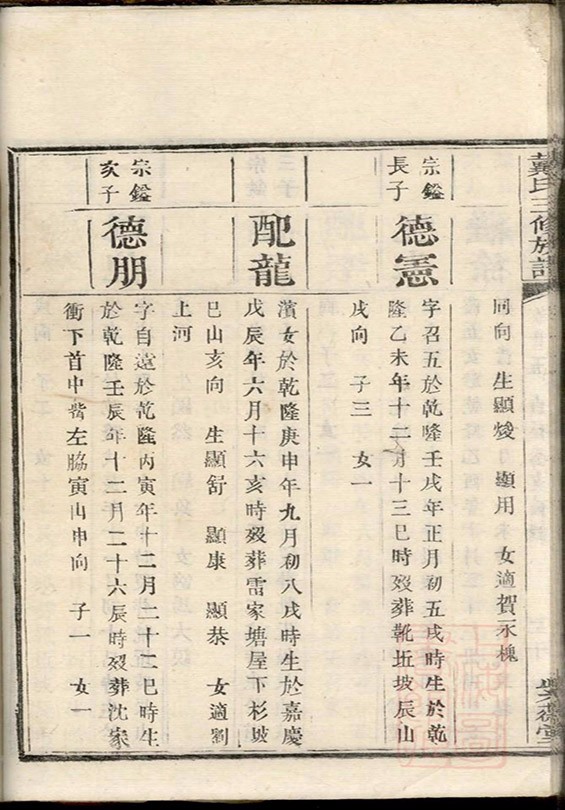 戴氏三修族譜
同向 生顯煥 顯用 女適賀永槐
宗鎰
長子
德憲
字召五於乾隆壬戌年正月初五戌時生於乾
隆乙未年十二月十三巳時歿葬靴坵坡辰山
戌向 子三 女一
配龍
濱女於乾隆庚申年九月初八戌時生於嘉慶
戊辰年六月十六亥時歿葬雷家塘屋下杉坡
巳山亥向 生顯舒 顯康 顯恭 女適劉
上河
宗鎰
亥子
德朋
字自遠於乾隆丙寅年十二月二十二巳時生
於乾隆壬辰年十二月二十六辰時歿葬沈家
衝下首中嘴左脇寅山申向 子一 女一